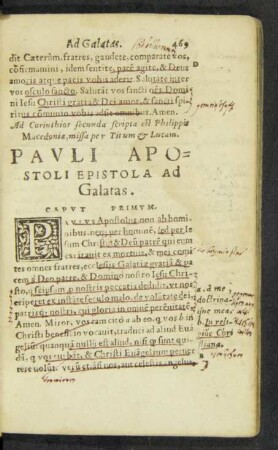 Ad Galatas.
469
dit Cæterũm, fratres, gaudete, comparate vos,
cõfirmamini, idem sentite, pacẽ agite, & Deus
amoris atque pacis vobis aderit. Salutate inter
vos osculo sancto. Salutãt vos sancti oẽs. Domi
ni Iesu Christi gratia & Dei amor, & sancti spi
ritus cõmunio vobis adsit omnibus. Amen.
Ad Corinthios secunda scripta est Philippis
Macedoniæ, missa per Titum & Lucam.
PAVLI APO=
STOLI EPISTOLA AD
Galatas.
CAPVT PRIMVM.
PAVLVS Apostolus non ab homi
nibus, non per hominẽ, sed per Ie
sum Christũ & Deũ patrẽ qui eum
excitauit ex mortuis, & mei comi
tes omnes fratres, ecclesiis Galatiæ gratiã & pa
cem à Deo patre, & Domino nostro Iesu Chri-
sto, qui seipsum p nostris peccatis dedidit, vt nos
eriperet ex instãte seculo malo, de volũtate dei
patrisq; nostri, cui gloria in omne perẽnitatẽ.
Amen. Miror, vos tam citò à ab eo, q vos b in
Christi beneficio vocauit, traduci ad aliud Euã
gelium quanquã nullũ est aliud, nisi q sunt qui-
dã, q vos turbãt, & Christi Euãgelium peruer
tere volũt. verũ etiã si nos, aut cœlestis angelus
a. à me
doctrina
b. In